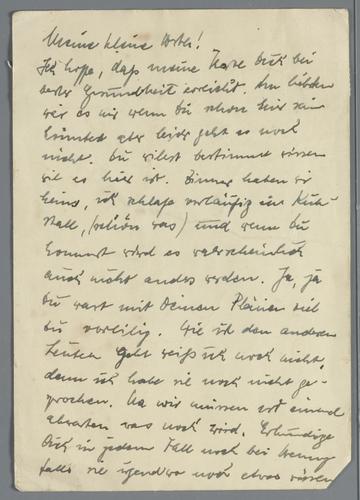 Meine kleine
Ich hoffe, daß meine Karte Dich bei
bester Gesundheit erreicht. Am liebsten
wär es mir wenn Du schon hier sein
könntest aber leider geht es noch
nicht. Du willst bestimmt wissen
wie es hier ist. Zimmer haben wir
keins, ich schlafe vorläufig im Kuh-
stall, (schön was) und wenn Du
kommst wird es wahrscheinlich
auch nicht anders werden. Ja, ja
Du warst mit Deinen Plänen viel
zu voreilig. Wie es den anderen
Leuten geht weiß ich noch nicht,
denn ich habe sie noch nicht ge-
sprochen. Na wir müssen erst einmal
abwarten was noch wird. Erkundige
Dich in jedem Fall noch bei
falls sie irgendwo noch etwas wissen